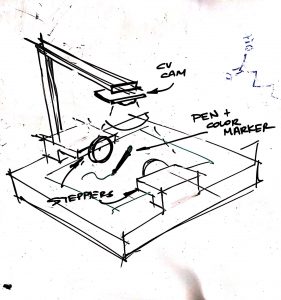 CV
CAM
PEN +
COLOR
MARKER
STEPPERS